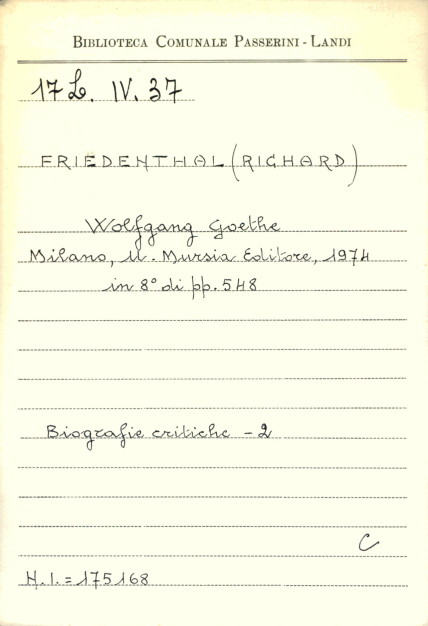 BIBLIOTECA COMUNALE PASSERINI - LANDI
17 L. IV. 37
FRIEDENTHAL (RICHARD)
Wolfgang Goethe
Milano, U. Mursia Editore, 1974
in 8° di pp. 548
Biografie critiche - 2
C
N.I. = 175168